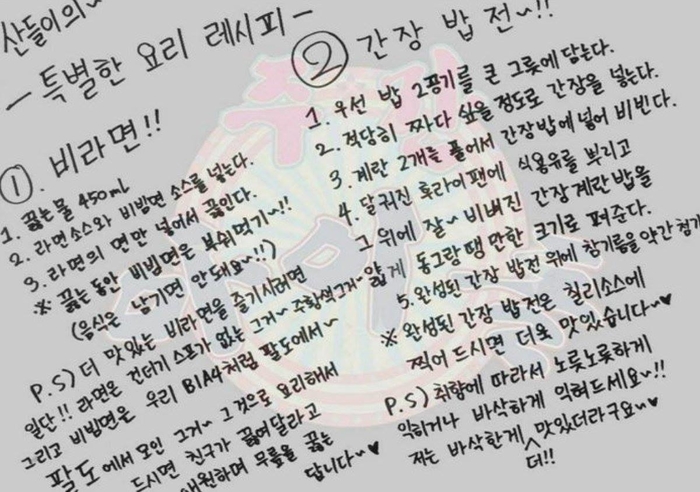 산들이의~
- 특별한 요리 레시피 -
①. 비라면!!
1. 끓는물 450mL
2. 라면소스와 비빔면 소스를 넣는다.
3. 라면의 면만 넣어서 끓인다.
※ 끓는동안 비빔면은 부숴먹기~!!
(음식은 남기면 안돼요~!!)
P.S) 더 맛있는 비라면을 즐기시려면
일단!! 라면은 건더기 스프가 없는 그거~ 주황색그거~
그리고 비빔면은 우리 B1A4처럼 팔도에서~
팔도에서 모인 그거~ 그것으로 요리해서
드시면 친구가 끓여달라고
애원하며 무릎을 꿇는
답니다~♥
② 간장 밥 전~!!
1. 우선 밥 2공기를 큰 그릇에 담는다.
2. 적당히 짜다 싶을 정도로 간장을 넣는다.
3. 계란 2개를 풀어서 간장밥에 넣어 비빈다.
4. 달궈진 후라이팬에 식용유를 뿌리고
그 위에 잘~ 비벼진 간장계란밥을
얇게 동그랑땡 만한 크기로 펴준다.
5. 완성된 간장 밥전 위에 참기름을 약간 첨가
※ 완성된 간장 밥전은 칠리소스에
찍어 드시면 더욱 맛있습니다~♥
P.S) 취향에 따라서 노릇노릇하게
익히거나 바삭하게 익혀드세요~!!
저는 바삭한게 더!! 맛있더라구요~♥
주간
아이돌